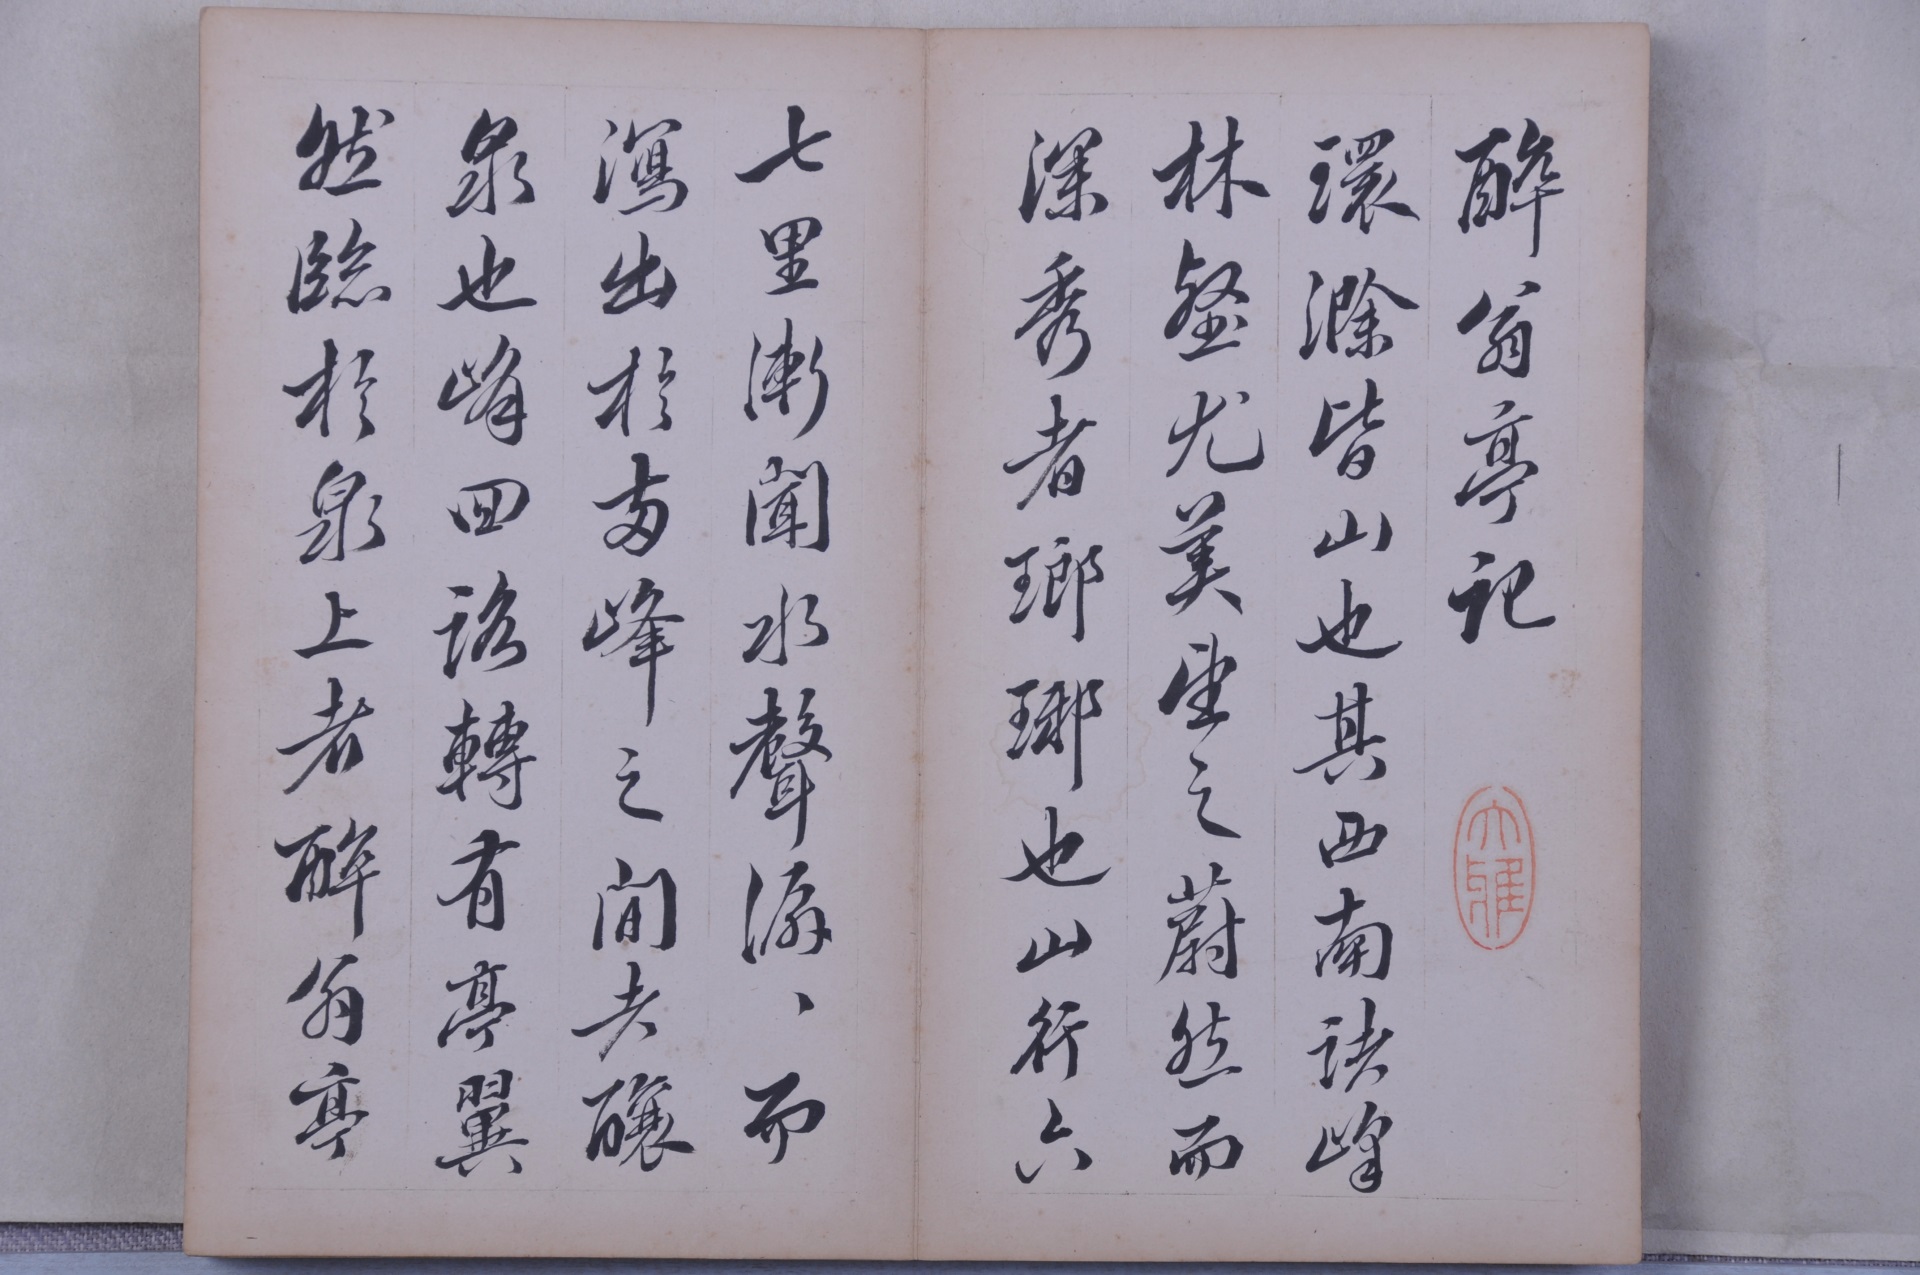 醉翁亭記
大雅
環滁皆山也其西南諸峰
林壑尤美望之蔚然而
深秀者瑯瑯也山行六
七里漸聞水聲潺、而
瀉出於兩峰之間者釀
泉也峰回路轉有亭翼
然臨於泉上者醉翁亭